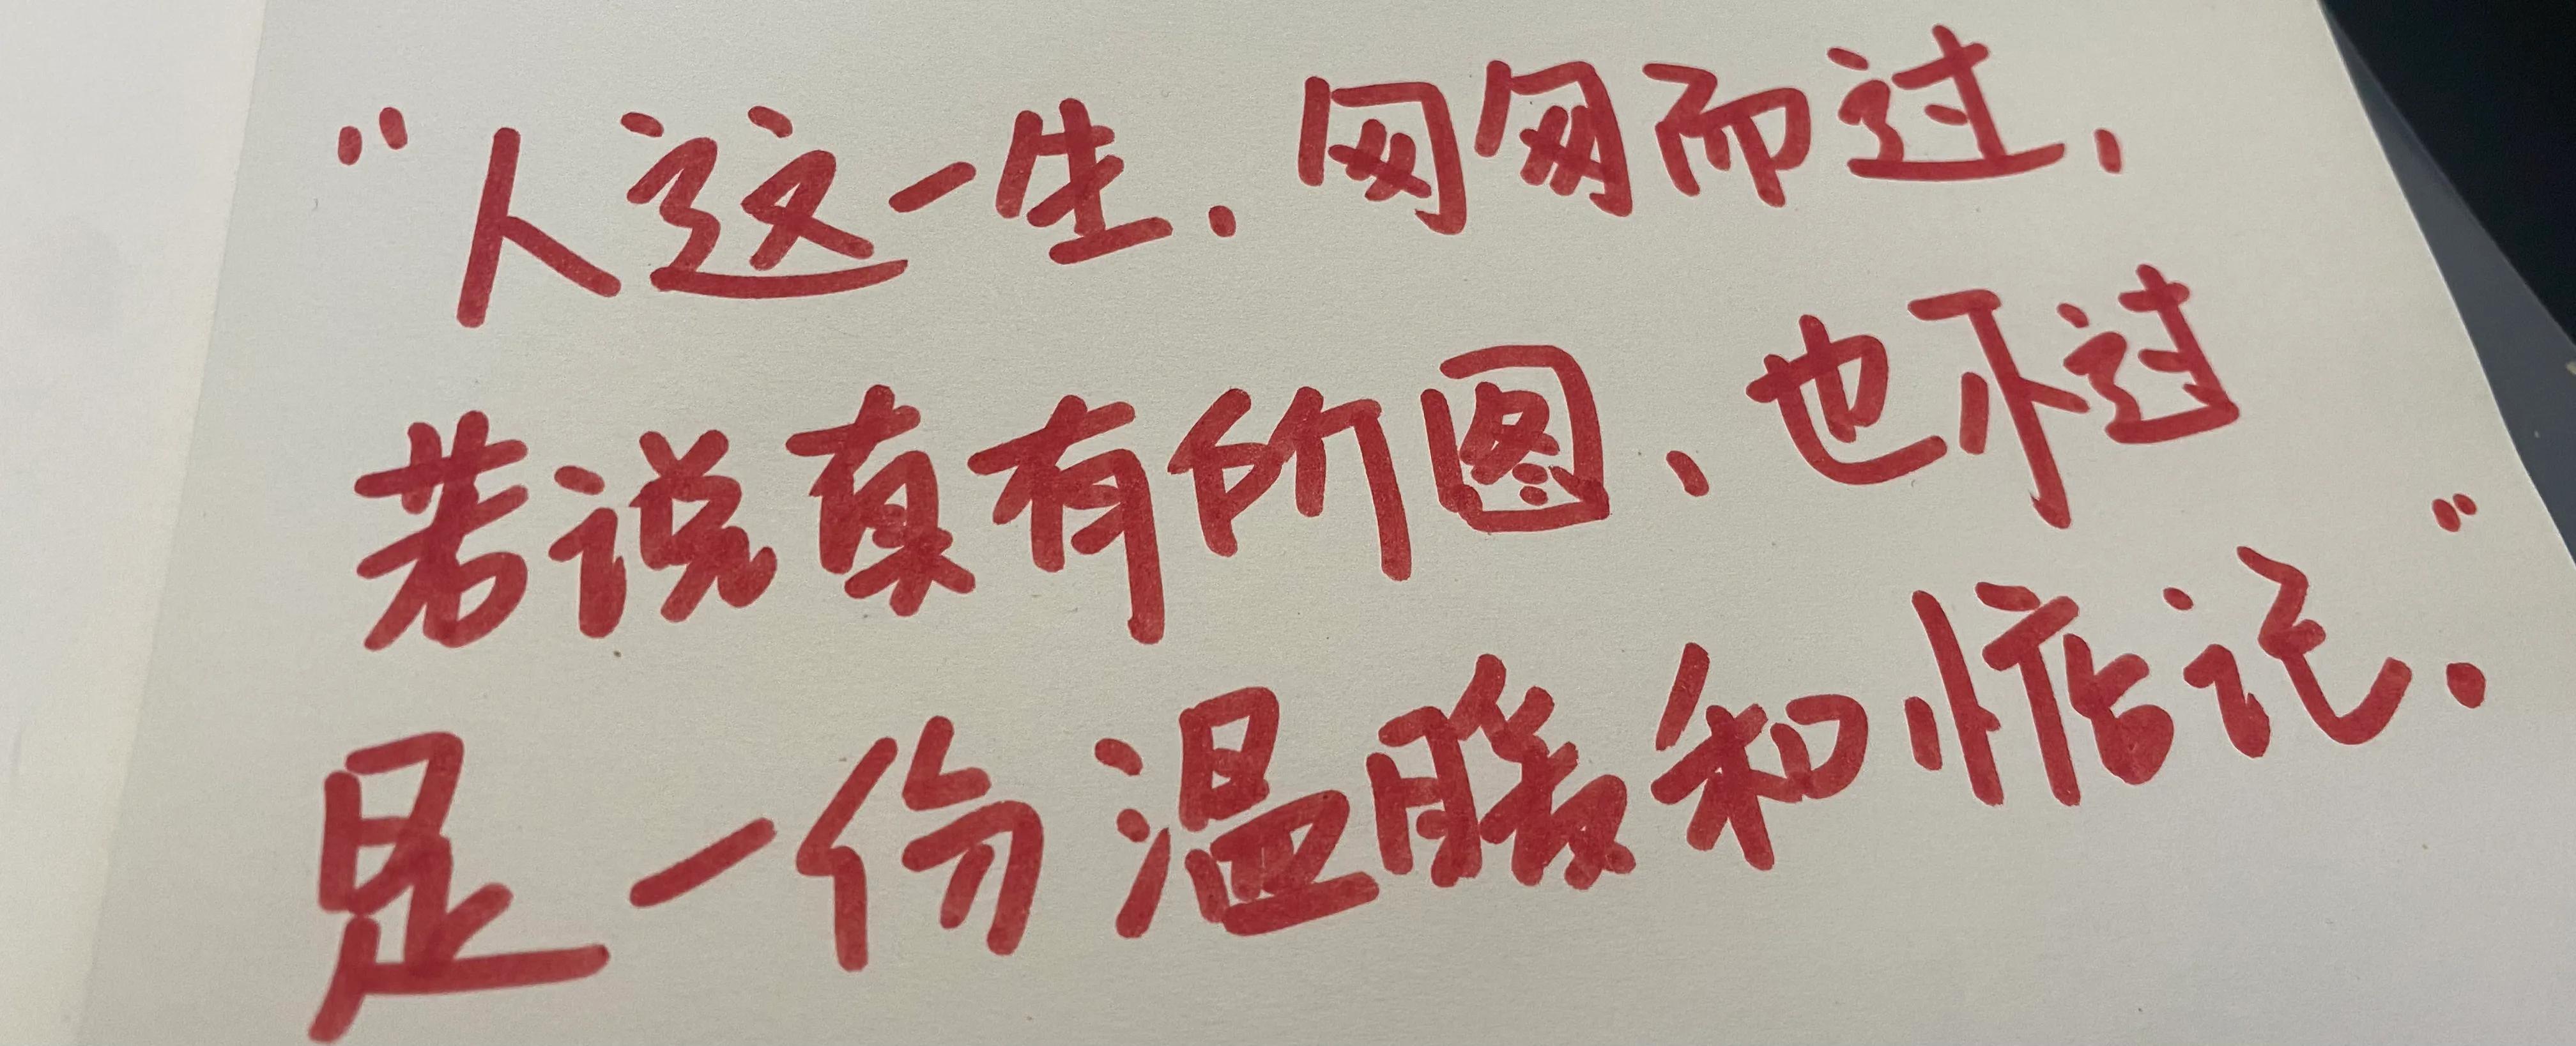 “人这一生，匆匆而过，
若说真有所图，也不过
是一份温暖和惦记。”